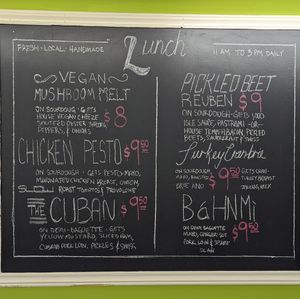 FRESH · LOCAL · HANDMADE
Lunch
11 AM TO 3 PM DAILY
VEGAN
MUSHROOM MELT
ON SOURDOUGH · GETS
HOUSE VEGAN CHEEZE
SAUTEED OYSTER SHROOMS,
PEPPERS, & ONIONS
$8
CHICKEN PESTO $9.50
ON SOURDOUGH · GETS PESTO MAYO,
MARINATED CHICKEN BREAST, ONION,
ROAST TOMATOES & PROVOLONE
THE CUBAN $9.50
ON DEMI-BAGUETTE · GETS
YELLOW MUSTARD, SLICED HAM,
CUBAN PORK LOIN, PICKLES & SWISS
PICKLED BEET
REUBEN $9
ON SOURDOUGH · GETS 1000
ISLE SAUCE, PASTRAMI -OR-
HOUSE TEMPEH BACON, PICKLED
BEETS, SAUERKRAUT & SWISS
Turkey
ON SOURDOUGH,
$9.50
GETS
TURKEY BREAST
BáHNMi
ON DEMI BAGUETTE
MAYO, GINGER SOY
PORK LOIN &
SLAW
$9.50